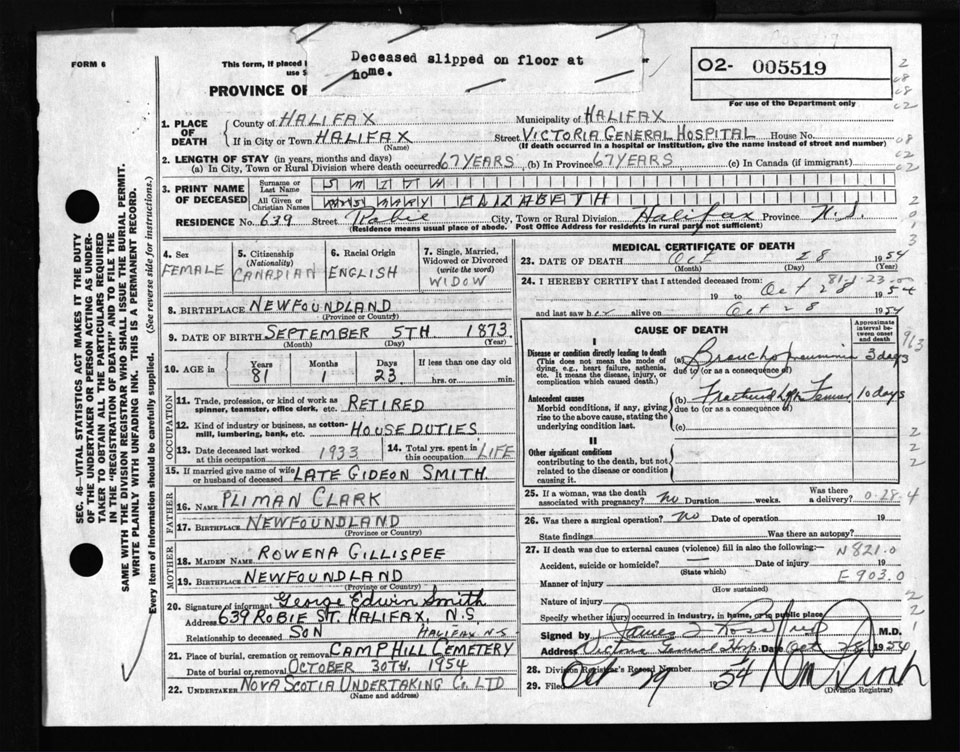 Deceased slipped on floor at
home.
FORM 6
This form, if placed
PROVINCE OF
O2- 005519
For use of the Department only
1. PLACE OF DEATH
County of HALIFAX Municipality of HALIFAX
If in City or Town HALIFAX Street VICTORIA GENERAL HOSPITAL House No.
(Name) (If death occurred in a hospital or institution, give the name instead of street and number)
2. LENGTH OF STAY (in years, months and days)
(a) In City, Town or Rural Division where death occurred 67 YEARS (b) In Province 67 YEARS (c) In Canada (if immigrant)
3. PRINT NAME OF DECEASED
Surname or Last Name SMITH
All Given or Christian Names MRS MARY ELIZABETH
RESIDENCE No. 639 Street Robie City, Town or Rural Division Halifax Province N.S.
(Residence means usual place of abode. Post Office Address for residents in rural parts not sufficient)
4. Sex
FEMALE
5. Citizenship
(Nationality)
CANADIAN
6. Racial Origin
ENGLISH
7. Single, Married, Widowed or Divorced
(write the word)
WIDOW
8. BIRTHPLACE NEWFOUNDLAND
(Province or Country)
9. DATE OF BIRTH SEPTEMBER 5TH 1873
(Month) (Day) (Year)
10. AGE in Years Months Days If less than one day old
81 1 23 hrs. or min.
OCCUPATION
11. Trade, profession, or kind of work as
spinner, teamster, office clerk, etc. RETIRED
12. Kind of industry or business, as cotton-
mill, lumbering, bank, etc. HOUSE DUTIES
13. Date deceased last worked at this occupation 1933
14. Total yrs. spent in this occupation LIFE
15. If married give name of wife
or husband of deceased LATE GIDEON SMITH.
FATHER
16. NAME PLIMAN CLARK
17. BIRTHPLACE NEWFOUNDLAND
(Province or Country)
MOTHER
18. MAIDEN NAME ROWENA GILLISPEE
19. BIRTHPLACE NEWFOUNDLAND
(Province or Country)
20. Signature of informant George Edwin Smith
Address 639 ROBIE ST. HALIFAX, N.S.
Relationship to deceased SON HALIFAX N.S
21. Place of burial, cremation or removal CAMP HILL CEMETERY
Date of burial or removal OCTOBER 30TH. 1954
22. UNDERTAKER NOVA SCOTIA UNDERTAKING CO. LTD
(Name and address)
MEDICAL CERTIFICATE OF DEATH
23. DATE OF DEATH Oct 28 1954
(Month) (Day) (Year)
24. I HEREBY CERTIFY that I attended deceased from:
19 to Oct 28 1954
and last saw her alive on Oct 28 1954
CAUSE OF DEATH
Approximate interval between onset and death
I
Disease or condition directly leading to death
(This does not mean the mode of
dying, e.g., heart failure, asthenia,
etc. It means the disease, injury, or
complication which caused death.)
(a) Broncho pneumonia 3 days
due to (or as a consequence of)
Antecedent causes
Morbid conditions, if any, giving
rise to the above cause, stating the
underlying condition last.
(b) Fractured Femur 10 days
due to (or as a consequence of)
(c)
II
Other significant conditions
contributing to the death, but not
related to the disease or condition
causing it.
25. If a woman, was the death
associated with pregnancy? No Duration weeks. Was there a delivery?
0-28-4
26. Was there a surgical operation? no Date of operation 19
State findings Was there an autopsy?
27. If death was due to external causes (violence) fill in also the following:— N821.0
Accident, suicide or homicide? Date of injury 19
(State which) E-903.0
Manner of injury
(How sustained)
Nature of injury
Specify whether injury occurred in industry, in home, or in public place
Signed by James M.D.
Address Victoria General Hosp. Date Oct 29 1954
28. Division Registrar's Record Number
29. Filed Oct 29 1954
(Division Registrar)
SEC. 46—VITAL STATISTICS ACT MAKES IT THE DUTY
OF THE UNDERTAKER OR PERSON ACTING AS UNDER-
TAKER TO OBTAIN ALL THE PARTICULARS REQUIRED
IN THE "REGISTRATION OF DEATH" AND TO FILE THE
SAME WITH THE DIVISION REGISTRAR WHO SHALL ISSUE THE BURIAL PERMIT.
WRITE PLAINLY WITH UNFADING INK. THIS IS A PERMANENT RECORD.
Every item of information should be carefully supplied. (See reverse side for instructions.)